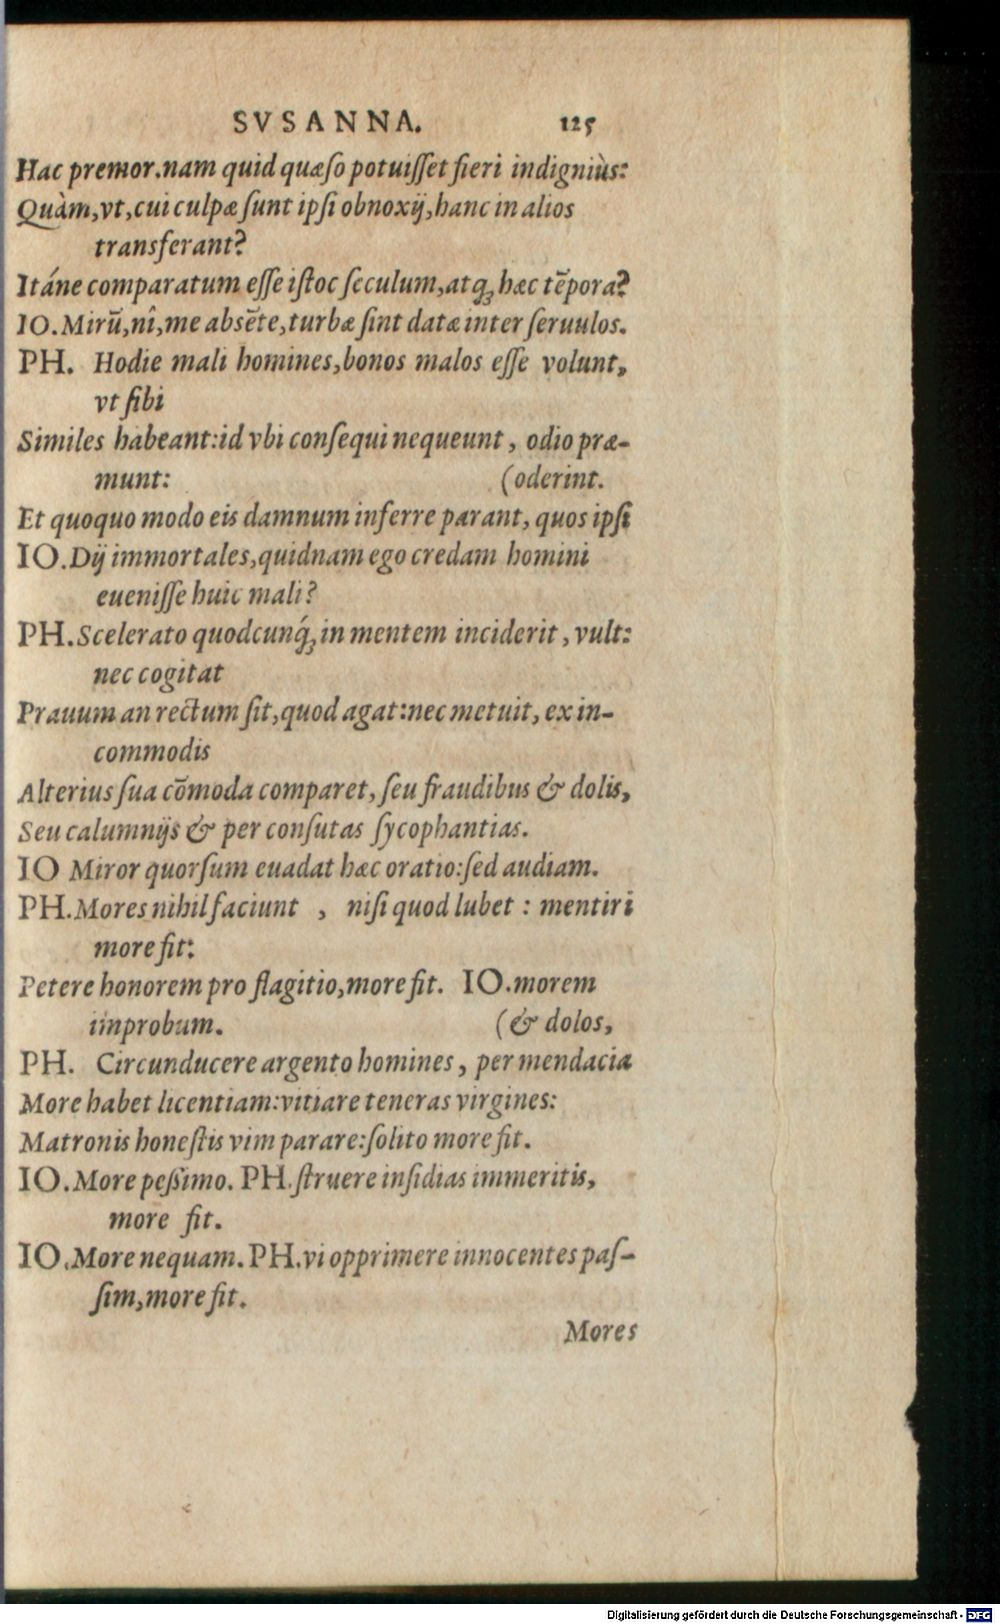 SVSANNA. 125
Hac premor.nam quid quæſo potuiſſet fieri indigniùs:
Quàm,vt,cui culpæ ſunt ipſi obnoxij,hanc in alios
transferant?
Itáne comparatum eſſe iſtoc ſeculum,atq́ꝫ hæc tēpora?
IO.Mirū,nî,me absēte,turbæ ſint datæ inter ſeruulos.
PH. Hodie mali homines,bonos malos eſſe volunt,
vt ſibi
Similes habeant:id vbi conſequi nequeunt, odio præ-
munt: (oderint.
Et quoquo modo eis damnum inferre parant, quos ipſi
IO.Dij immortales,quidnam ego credam homini
eueniſſe huic mali?
PH.Scelerato quodcunq́ꝫ in mentem inciderit, vult:
nec cogitat
Prauum an rectum ſit,quod agat:nec metuit, ex in-
commodis
Alterius ſua cōmoda comparet, ſeu fraudibus & dolis,
Seu calumnijs & per conſutas ſycophantias.
IO Miror quorſum euadat hæc oratio:ſed audiam.
PH.Mores nihil faciunt , niſi quod lubet : mentiri
more fit:
Petere honorem pro flagitio,more fit. IO.morem
improbum. (& dolos,
PH. Circunducere argento homines, per mendacia
More habet licentiam:vitiare teneras virgines:
Matronis honeſtis vim parare:ſolito more fit.
IO.More peßimo. PH.ſtruere inſidias immeritis,
more fit.
IO.More nequam. PH.vi opprimere innocentes paſ-
ſim,more fit.
Mores
Digitalisierung gefördert durch die Deutsche Forschungsgemeinschaft - DFG